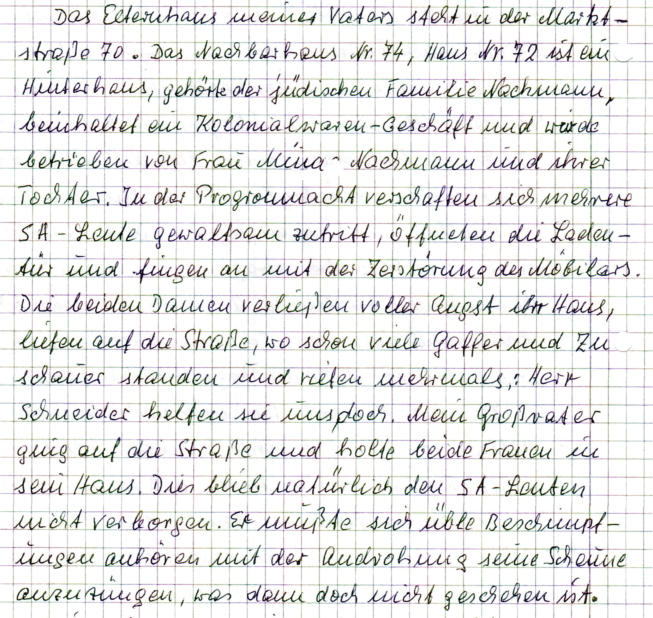 Das Elternhaus meines Vaters steht in der Markt-
straße 70. Das Nachbarhaus Nr. 74, Haus Nr. 72 ist ein
Hinterhaus, gehörte der jüdischen Familie Nachmann,
beinhaltet ein Kolonialwaren-Geschäft und wurde
betrieben von Frau Mina-Nachmann und ihrer
Tochter. In der Progromnacht verschaften sich mehrere
SA-Leute gewaltsam zutritt, öffneten die Laden-
tür und fingen an mit der Zerstörung des Mobilars.
Die beiden Damen verließen voller Angst ihr Haus,
liefen auf die Straße, wo schon viele Gaffer und Zu
schauer standen und riefen mehrmals,: Herr
Schneider helfen sie uns doch. Mein Großvater
ging auf die Straße und holte beide Frauen in
sein Haus. Dies blieb natürlich den SA-Leuten
nicht verborgen. Er mußte sich üble Beschimpf-
ungen anhören mit der Androhung seine Scheune
anzuzünden, was dann doch nicht geschehen ist.